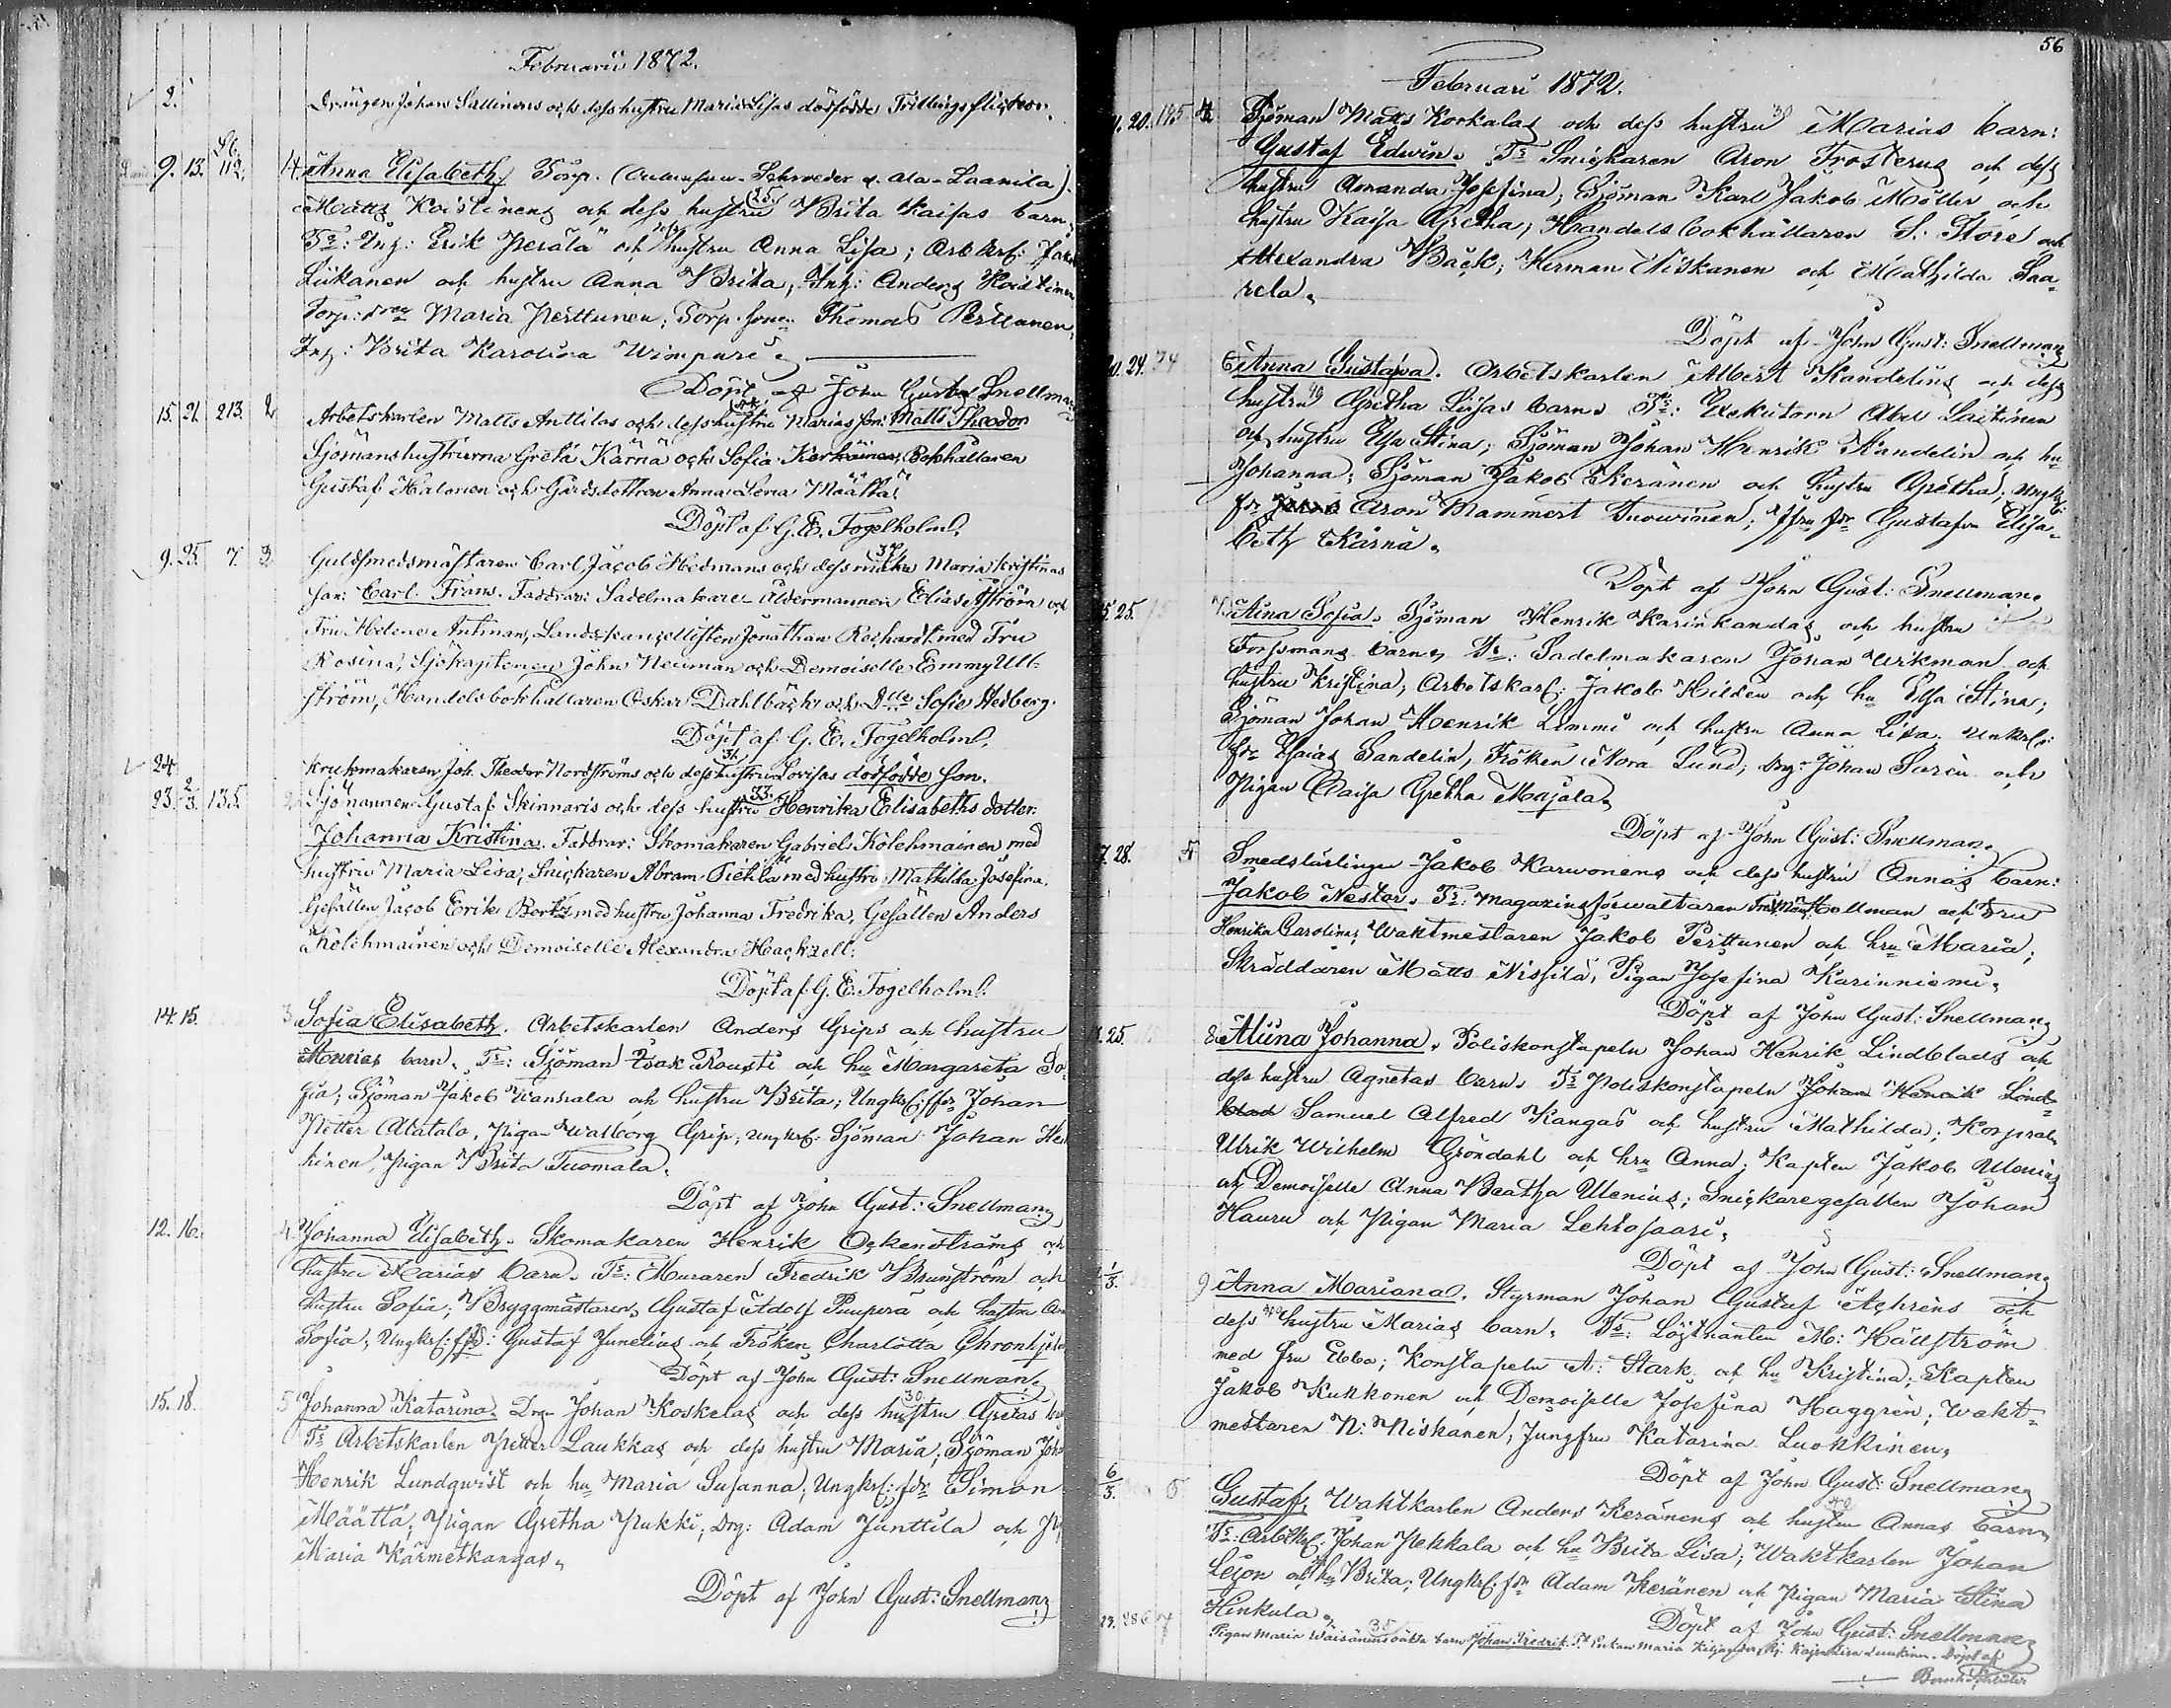 Februarii 1872.
2. Drängen Johan Sallinens och dess hustru Maria Lisas dödfödde Trillingsflickor.
9. 13. 112. Anna Elisabeth, Torp. Ala-Laanila).
Matts Koistinens och dess hustru 35 Brita Kaisas barn,
Fr: Inh: Erik Perälä och hustru Anna Lisa; Arb.karl:
Liikanen och hustru Anna Brita, Inh: Anders
Torp: Maria Perttunen; Torp. son Thomas Perttunen,
Inh: Brita Karolina Wimpari
Döpt af John Gust. Snellman
15. 21. 213. 2 Arbetskarlen Matts Anttilas och dess hustru Marias son: Matts Theodor
Sjömanshustrurna Greta Kärnä och Sofia Korkäinen, Bokhållaren
Gustaf Halonen och Gårdsdottren Anna Lena Määttä.
Döpt af G. E. Fogelholm.
9. 25. 7. 3 Guldsmedsmästaren Carl Jacob Hedmans och dess maka Maria Kristinas
son: Carl Frans. Faddrar: Sadelmakare Åldermannen Elias Åström och
Fru Helene Antman, Landskansellisten Jonathan med Fru
Rosina, Sjökaptenen John Neuman och Demoiselle Emmy Ull-
ström, Handelsbokhållaren Oskar Dahlbäck och Dlle Sofie Hedberg.
Döpt af G. E. Fogelholm.
24. Krukmakaren Joh. Theodor Nordströms och dess hustru Lovisas dödfödde son.
23. 2/3. 135. 2 Sjömannen Gustaf Skinnaris och dess hustru 33 Henrika Elisabeths dotter:
Johanna Kristina. Faddrar: Skomakaren Gabriel Kolehmainen med
hustru Maria Lisa, Snickaren Abram Pichla med hustru Mathilda Josefina.
Gesällen Jacob Erik med hustru Johanna Fredrika, Gesällen Anders
Kolehmainen och Demoiselle Alexandra Hackzell.
Döpt af G. E. Fogelholm.
14. 15. 3. Sofia Elisabeth. Arbetskarlen Anders Grips och hustru
Marias barn. Fr: Sjöman Isak Rousti och hu Margareta So-
fia; Sjöman Jakob Wanhala och hustru Brita; Ungkrl: Johan
Petter Alatalo, Pigan Walborg Grip; ungkrl: Sjöman Johan Hei
kinen, Pigan Brita Tuomala.
Döpt af John Gust: Snellman
12. 16. 4. Johanna Elisabeth. Skomakaren Henrik Öckenströms och
hustru Marias barn. Fr: Muraren Fredrik Brunström och
hustru Sofia; Bryggmästaren Gustaf Adolf Puuperä och hustru
Sofia; Ungkrl: Gustaf Junelius och Fröken Charlotta
Döpt af John Gust: Snellman.
15. 18. 5 Johanna Katarina. Drg. Johan Koskelas och dess hustru 30 Gretas
Fr Arbetskarlen Petter Laukkas och dess hustru Maria; Sjöman
Henrik Lundqwist och hu Maria Susanna; Ungkrl: Simon
Määttä, Pigan Gretha Pukki, Drg: Adam Junttila och
Maria Kärmetkangas.
Döpt af John Gust: Snellman
56
Februari 1872.
20. 195 4. Sjöman Matts Korkalas och dess hustru 30 Marias barn:
Gustaf Edwin. Fr Snickaren Aron Frosterus och dess
hustru Amanda Josefina; Sjöman Karl Jakob Möller och
hustru Kaisa Gretha; Handels bokhållaren S. Store och
Alexandra Bäck; Herman Niskanen och Mathilda Saa-
rela.
Döpt af John Gust: Snellman
24. 74 6 Anna Gustafva. Arbetskarlen Albert Kandelins och dess
hustru Gretha Lisas barn. Fr: Exekutorn Abel Laitinen
och hustru Elsa Stina; Sjöman Johan Henrik Kandelin och hu
Johanna; Sjöman Jakob Keränen och hustru Gretha; Ungk
Aron Mammert Gustafva Elisa-
beth Kärnä.
Döpt af John Gust: Snellman.
25. 7. Aina Sofia. Sjöman Henrik Karinkandas och hustru
Forssmans barn. Fr: Sadelmakaren Johan Wikman och
hustru Kristina; Arbetskarl: Jakob Hilden och hu Elsa Stina;
Sjöman Johan Henrik Limmi och hustru Anna Lisa.
Esaias Sandelin, Fröken Nora Lund; Drg: Johan och
Pigan Caisa Gretha Majala.
Döpt af John Gust: Snellman.
7. 28. 5 Smedslärlingen Jakob Karwonens och dess hustru Annas barn:
Jakob Nestor. Fr: Magazinsförwaltaren Hellman och Fru
Henrika Carolina; Waktmestaren Jakob Perttunen och hu Maria;
Skräddaren Matts Nissilä, Pigan Josefina Karinniemi.
Döpt af John Gust: Snellman
25. 8. Aliina Johanna. Poliskonstapeln Johan Henrik Lindblads och
dess hustru Agnetas barn. Fr Poliskonstapeln Johan Henrik Lind-
blad Samuel Alfred Kangas och hustru Mathilda; Korpral
Ulrik Wilhelm Gröndahl och hru Anna; Kapten Jakob Ulenius
och Demoiselle Anna Beatha Ulenius; Snickaregesällen Johan
Hauru och Pigan Maria Lehtosaari.
Döpt af John Gust: Snellman
1/3. 9 Anna Mariana. Styrman Johan Gustaf Åhréns och
dess 40 hustru Marias barn. Fr: Löjtnanten M: Hällström
med fru Ebba; Konstapeln A: Stark och hu Kristina; Kapten
Jakob Kukkonen och Demoiselle Josefina Haggrén; Wakt-
mestaren N: Niskanen, Jungfru Katarina Luokkinen.
Döpt af John Gust: Snellman
6/3. 6 Gustaf, Waktkarlen Anders Keränens och hustru Annas barn,
Fr: Arb.Krl: Johan Pekkala och hu Brita Lisa; Waktkarlen Johan
Leijon och hu Brita; Ungkrl: Adam Keränen och Pigan Maria Stina
Hinkula.
Döpt af John Gust: Snellman
23. 286 7 Pigan Maria Wäisänens oäkta barn Johan Fredrik. 35 Maria Kiljander, Döpt af